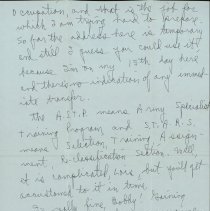 Occupation, and that is the job for
which I am trying hard to prepare.
So far the address here is temporary
and still I guess you could use it
because I'm on my 15th day here
and there's no indication of any immed-
iate transfer.
The A.S.T.P. means Army Specialist
Training Program and S.T.A.R.S.
means Selection, Training, Assign-
ment, Re-classification Section. Well
it is complicated, but you'll get
accustomed to it in time.
really fine, Bobby!